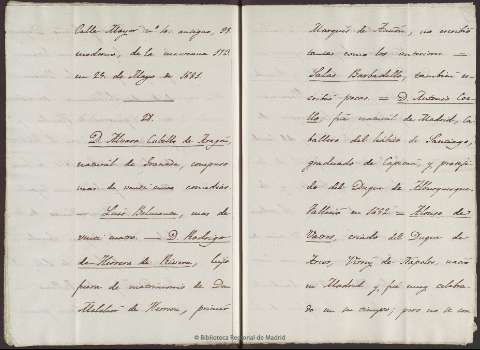 Calle Mayor nº 10 antiguo, 95
moderno, de la manzana 173
en 25 de Mayo en 1681.
21.
D. Alvaro Cubillo de Aragon,
natural de Granada, compuso
mas de veinte unas comedias
— Luis Belmonte, mas de
veinte cuatro. — D. Rodrigo
de Herrera de Rivera, hijo
fuera de matrimonio de Dn.
Melchor de Herrera, primer
Marqués de Auñon, no escribió
tantas como los anteriores =
Salas Barbadillo, tambien es-
cribió pocas. = D. Antonio Coe-
llo, fué natural de Madrid, Ca-
ballero del hábito de Santiago,
graduado de Capitan, y protegi-
do del Duque de Alburquerque.
Falleció en 1652 = Alonso de
Vatres, criado del Duque de
Arcos, Virrey de Nápoles, nació
en Madrid y fue muy celebra-
do en su tiempo; pero no se con-
© Biblioteca Regional de Madrid